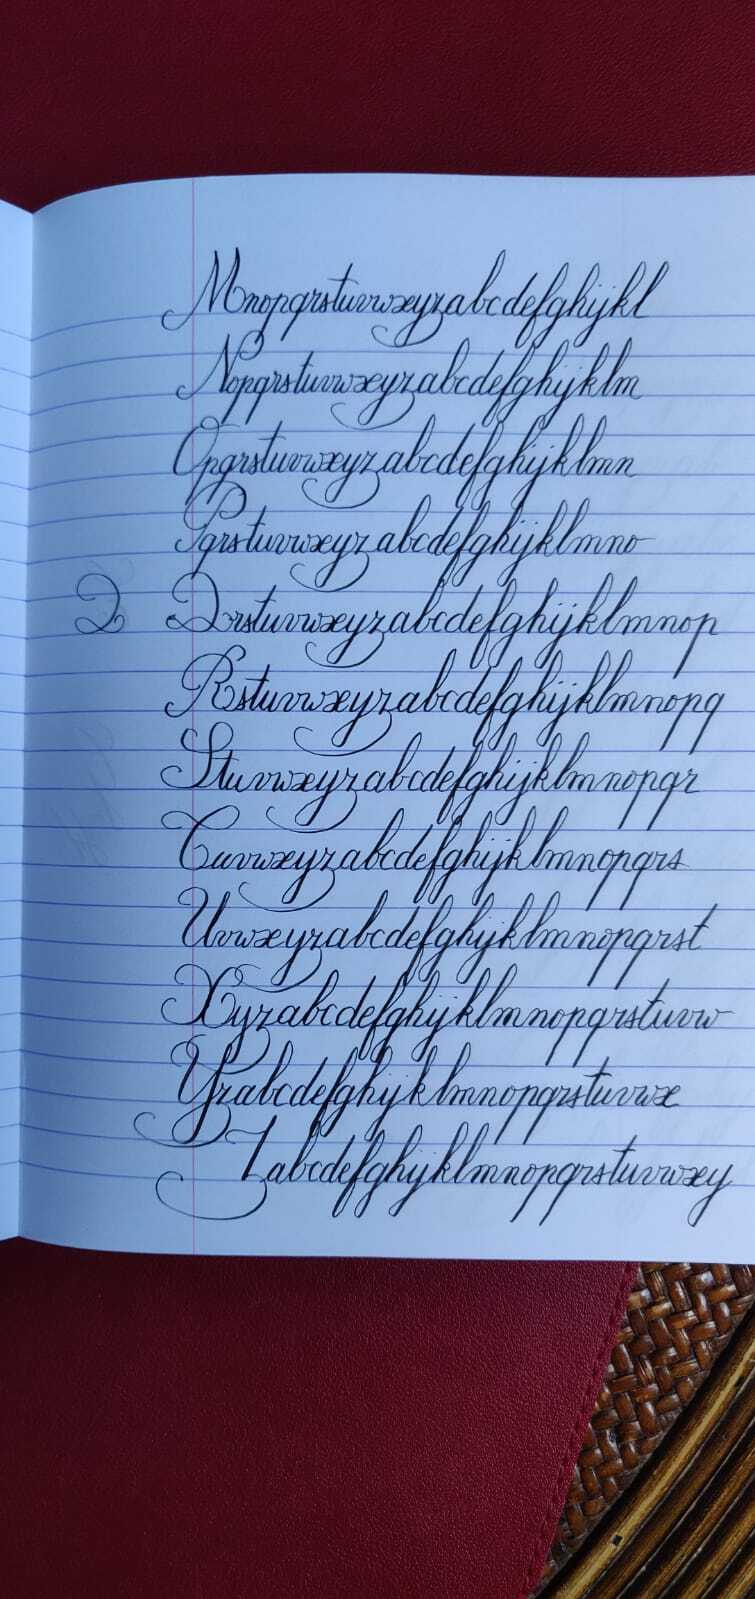 Mnopqrstuvwxyzabcdefghijkl
Nopqrstuvwxyzabcdefghijklm
Opqrstuvwxyzabcdefghijklmn
Pqrstuvwxyzabcdefghijklmno
Q Qrstuvwxyzabcdefghijklmnop
Rstuvwxyzabcdefghijklmnopq
Stuvwxyzabcdefghijklmnopqr
Tuvwxyzabcdefghijklmnopqrs
Uvwxyzabcdefghijklmnopqrst
Xyzabcdefghijklmnopqrstuvw
Yzabcdefghijklmnopqrstuvwx
Zabcdefghijklmnopqrstuvwxy